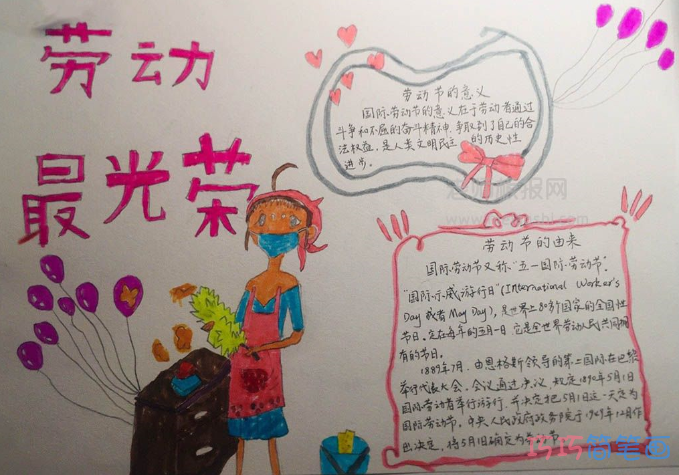 劳动
最光荣
劳动节的意义
国际劳动节的意义在于劳动者通过
斗争和不屈的奋斗精神,争取到了自己的合
法权益,是人类文明民主的历史性
进步。
劳动节的由来
国际劳动节又称"五一国际劳动节"、
"国际示威游行日"(International Worker's
Day 或者 May Day),是世界上80多个国家的全国性
节日。定在每年的五月一日。它是全世界劳动人民共同拥
有的节日。
1889年7月,由恩格斯领导的第二国际在巴黎
举行代表大会。会议通过决议,规定1890年5月1日
国际劳动者举行游行,并决定把5月1日这一天定为
国际劳动节。中央人民政府政务院于1949年12月作
出决定,将5月1日确定为劳动节。
巧巧简笔画